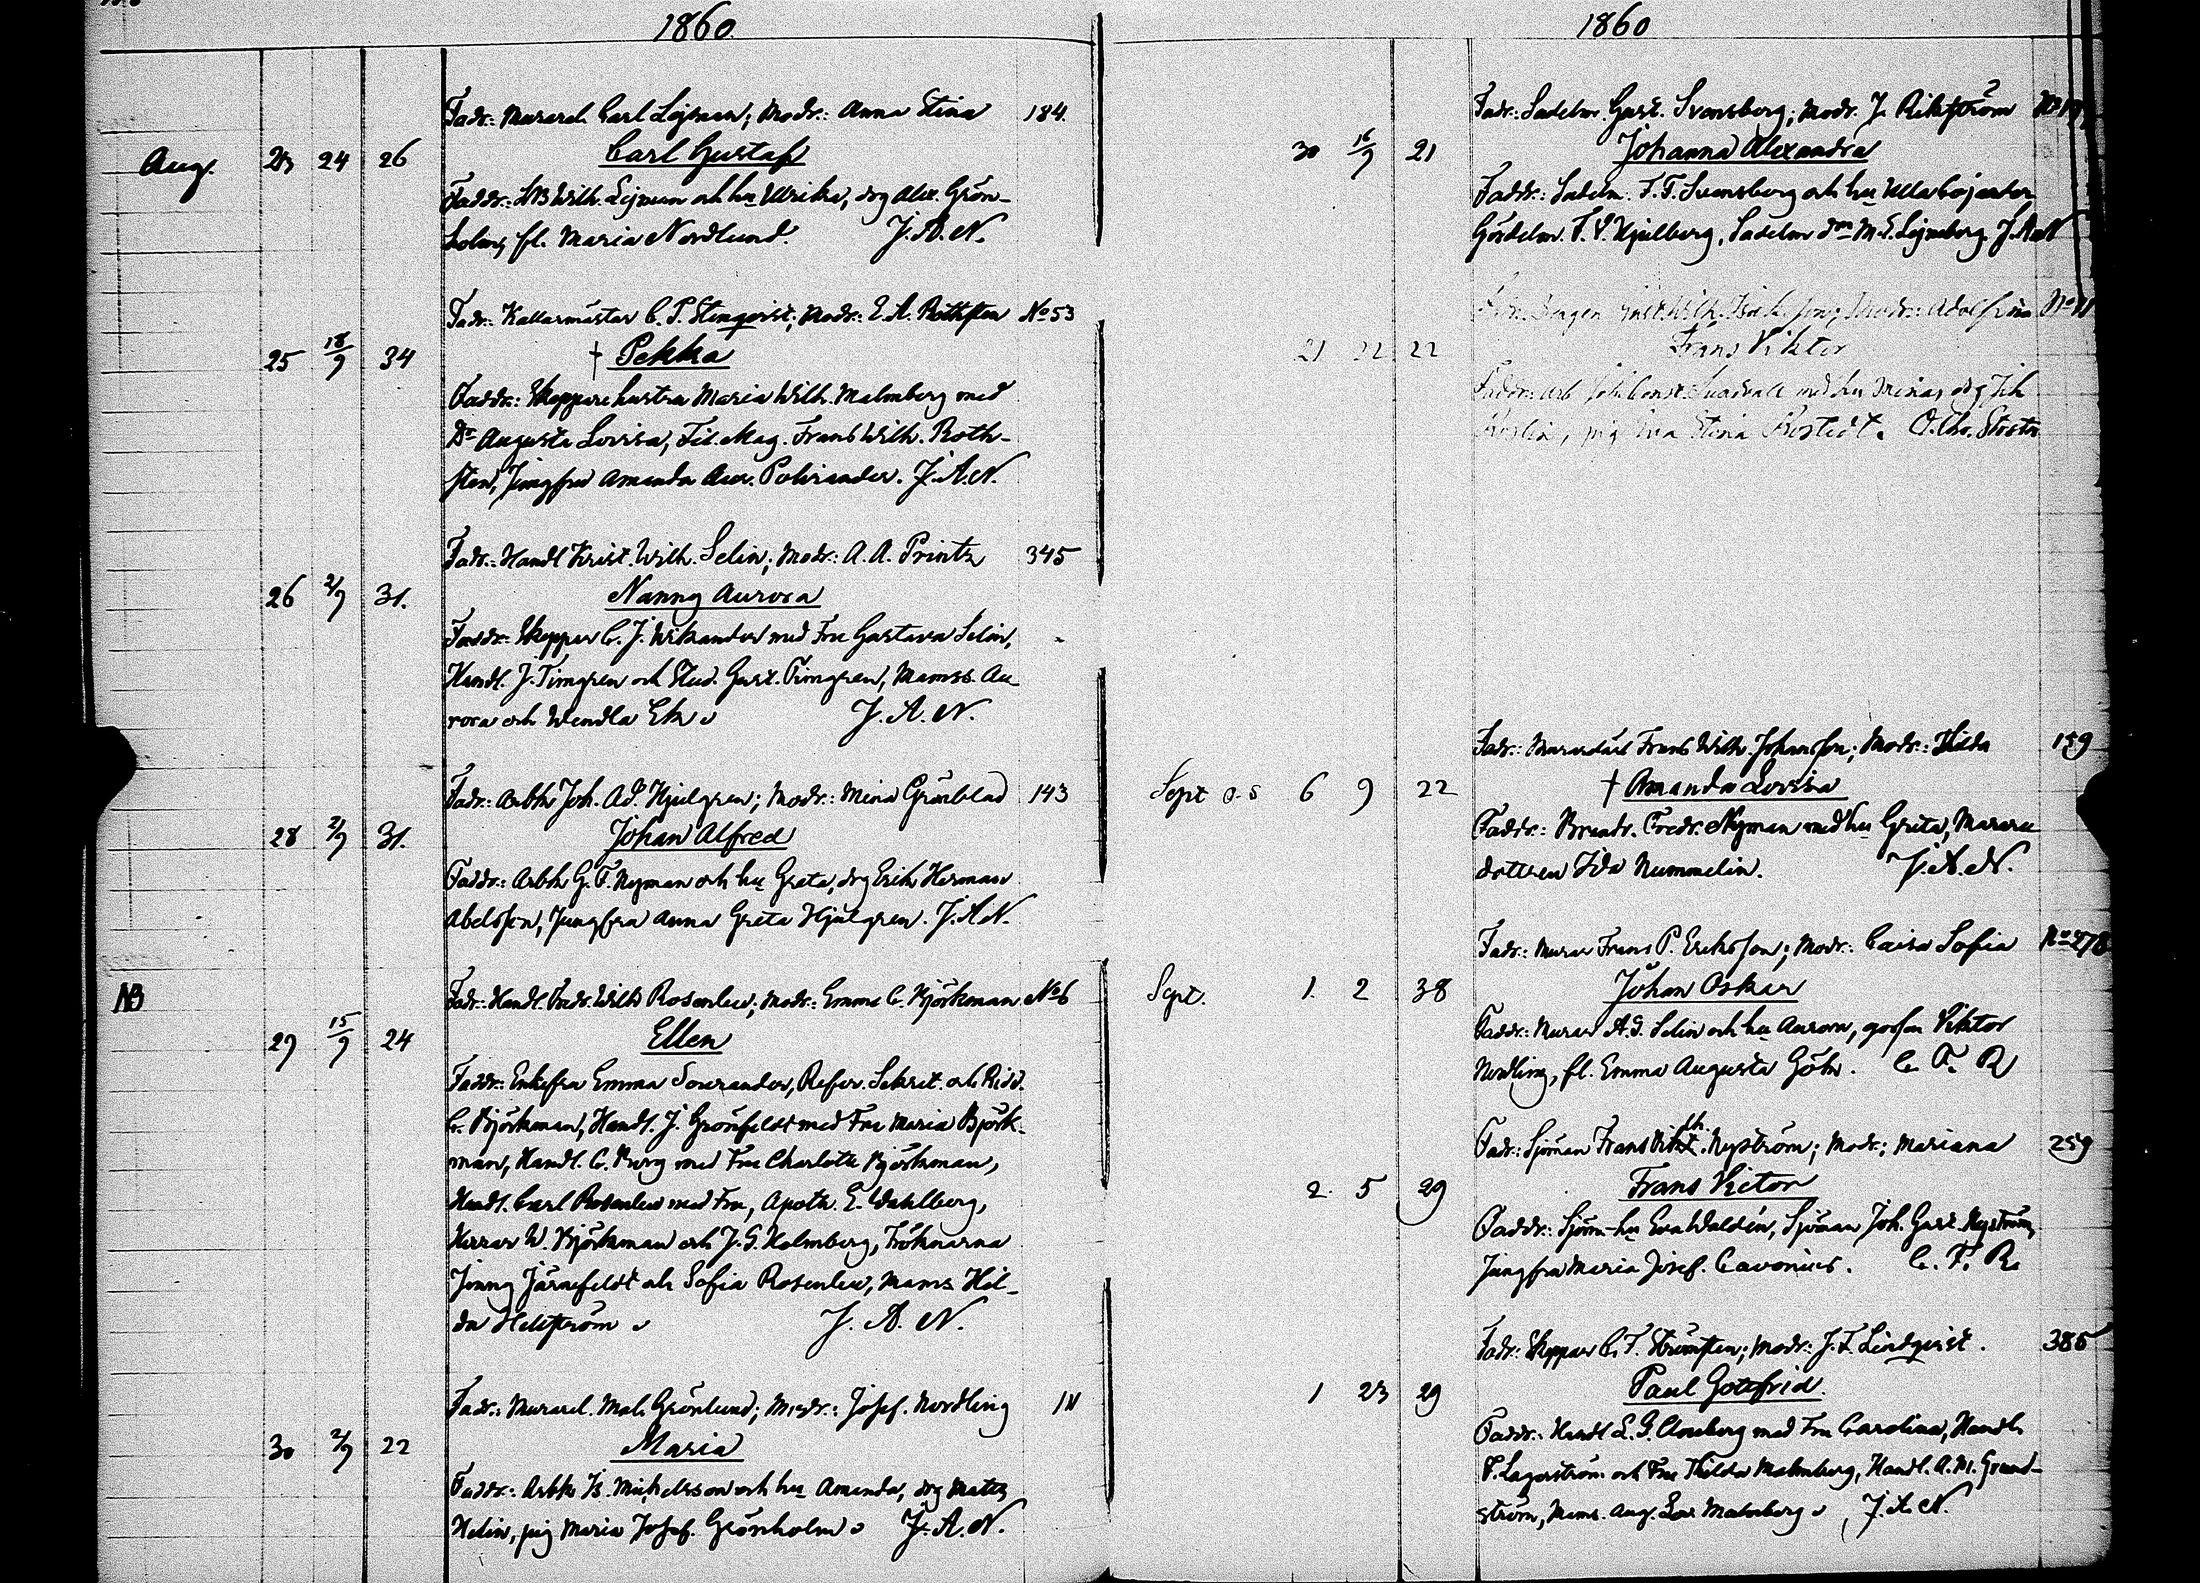 1860.
Fadr.: Murarel. Carl Lejman; Modr.: Anna Stina 184.
Aug. 23 24 26 Carl Gustaf
Faddr.: Wilh. Lejman och hu Ulrika, drg Alex. Grön-
holm, fl. Maria Nordlund. J. A. N.
Fadr.: Källarmästar C. P. Stenqvist; Modr.: E. A. Rothsten No 53
25 18/9 34 † Pekka
Faddr.: Skeppare hustru Maria Wilh. Malmberg med
Dr Augusta Lovisa, Fil. Mag. Frans Wilh. Roth-
sten, Jungfru Amanda Aur. Polviander. J. A. N.
Fadr.: Handl Krist. Wilh. Selin; Modr.: A. A. Printz 345
26 2/9 31. Nanny Aurora
Faddr.: Skeppar C. J. Wikander med Fru Gustava Selin,
Handl. J. Timgren och Stud. Gust. Timgren, Mamss. Au-
rora och Wendla Ek. J. A. N.
Fadr.: Arbk Joh. Ad. Hjulgren; Modr.: Mina Grönblad 143
28 2/9 31. Johan Alfred
Faddr.: Arbk G. F. Nyman och hu Greta, drg Erik Herman
Abelsson, Jungfru Anna Greta Hjulgren. J. A. N.
NB Fadr.: Handl. Fredr. Wilh Rosenlew; Modr.: Emma C. Björkman No 6
29 15/9 24 Ellen
Faddr.: Enkefru Emma Sourander, Refer. Sekret. och Ridd.
C. Björkman, Handl. J. Grönfeldt med Fru Maria Björk-
man, Handl. C. Borg med Fru Charlotte Björkman,
Handl. Carl Rosenlew med Fru, Apoth. E. Wahlberg,
Herrar W. Björkman och J. G. Holmberg, Fröknarna
Jenny Järnefeldt och Sofia Rosenlew, Mams. Hil-
da Hellström. J. A. N.
Fadr.: Murarel. Mal. Grönlund; Modr.: Josef. Nordling
30 2/9 22 Maria
Faddr.: Arbk Is. Mickelsson och hu Amanda, drg Matts
Helin, pig Maria Josef. Grönholm. J. A. N.
1860
Fadr.: Sadelm. Gust. Svensberg; Modr. J. Rikström
30 16/9 21 Johanna Alexandra
Faddr.: Sadelm. F. F. Svensberg och hu Ulla
Gördelm. F. V. Hjulberg, Sadelm dm M. S. Lejneberg. J. A. N
Modr.: Adolfina No 11
21 22 22 Frans Viktor
Stina
Fadr.: Frans Wilh. Johansson; Modr.: Hilda 159
Sept o.s 6 9 22 † Amanda Lovisa
Faddr.: Fredr. Nyman med hu Greta, Murare
dottren Ida Nummelin. J. A. N.
Fadr.: Murar Frans P. Eriksson; Modr.: Caisa Sofia No 278
Sept. 1. 2 38 Johan Oskar
Faddr.: Murar A. G. Selin och hu Aurora, gossen Viktor
Nordling, fl. Emma Augusta Göhr. C. F. R
Fadr.: Sjöman Frans Vikt. Nyström; Modr.: Mariana 259
2. 5 29 Frans Victor
Faddr.: Sjöm-hu Eva Waldén, Sjöman Joh. Gust. Nyström,
Jungfru Maria Josef. Cavonius. C. F. R.
Fadr.: Skeppar C. F. Strömsten; Modr.: J. F. Lindqvist. 385
1 23 29 Paul Gottfrid.
Faddr.: Handl L. G. Clouberg med Fru Carolina, Handl.
F. Lagerström och Fru Thilda Malmberg, Handl. A. M. Grund-
ström, Mams. Aug. Lov. Malmberg. J. A. N.